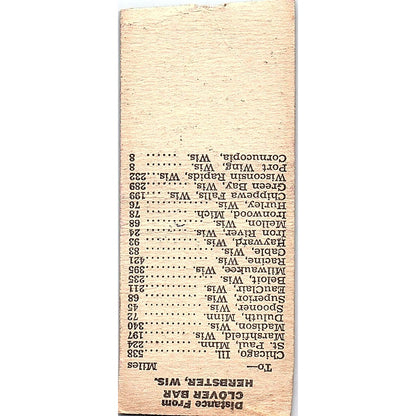 Distance From
CLOVER BAR
HERBSTER, WIS.
To— Miles
Chicago, Ill. 538
St. Paul, Minn. 224
Marshfield, Wis. 197
Madison, Wis. 340
Duluth, Minn. 72
Spooner, Wis. 45
Superior, Wis. 68
EauClair, Wis. 211
Beloit, Wis. 235
Milwaukee, Wis. 395
Racine, Wis. 421
Cable, Wis. 83
Hayward, Wis. 93
Iron River, Wis. 24
Mellen, Wis. 68
Ironwood, Mich. 78
Hurley, Wis. 76
Chippewa Falls, Wis. 199
Green Bay, Wis. 289
Wisconsin Rapids, Wis. 232
Port Wing, Wis. 8
Cornucopia, Wis. 8